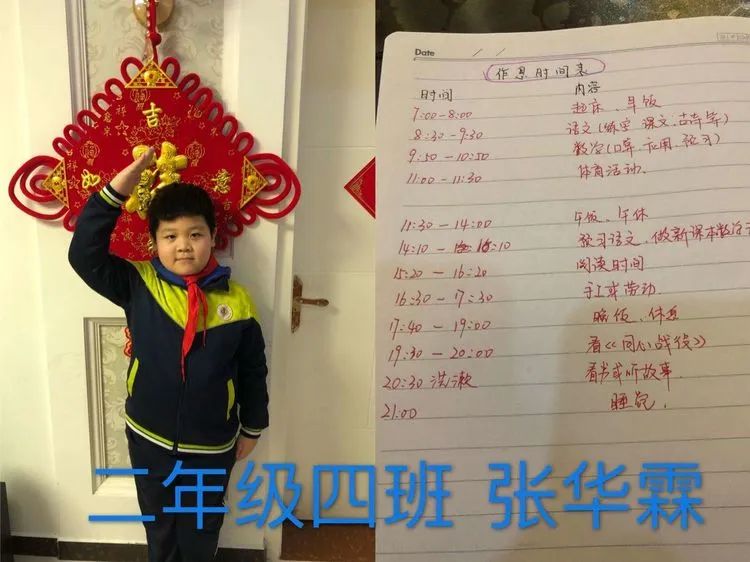 吉
祥
如
意
Date / /
作息时间表
时间 内容
7:00-8:00 起床、早饭
8:30-9:30 语文(练字、课文、古诗等)
9:50-10:50 数学(口算、应用、预习)
11:00-11:30 体育活动
11:30-14:00 午饭、午休
14:10-15:10 预习语文、做新课本数学
15:20-16:20 阅读时间
16:30-17:30 手工或劳动
17:40-19:00 晚饭、休息
19:30-20:00 看《同心战役》
20:30 洗漱 看书或听故事
21:00 睡觉.
二年级四班 张华霖